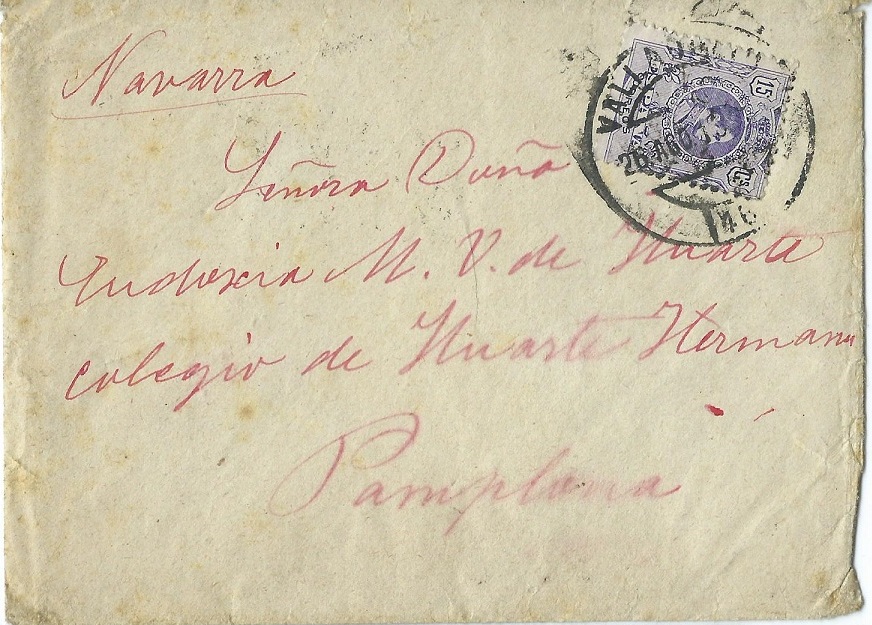 Navarra
Señora Doña
Eudoxia M. V. de Huarte
colegio de Huarte Herman
Pamplona
VALLADOLID
15
26 AGO
15